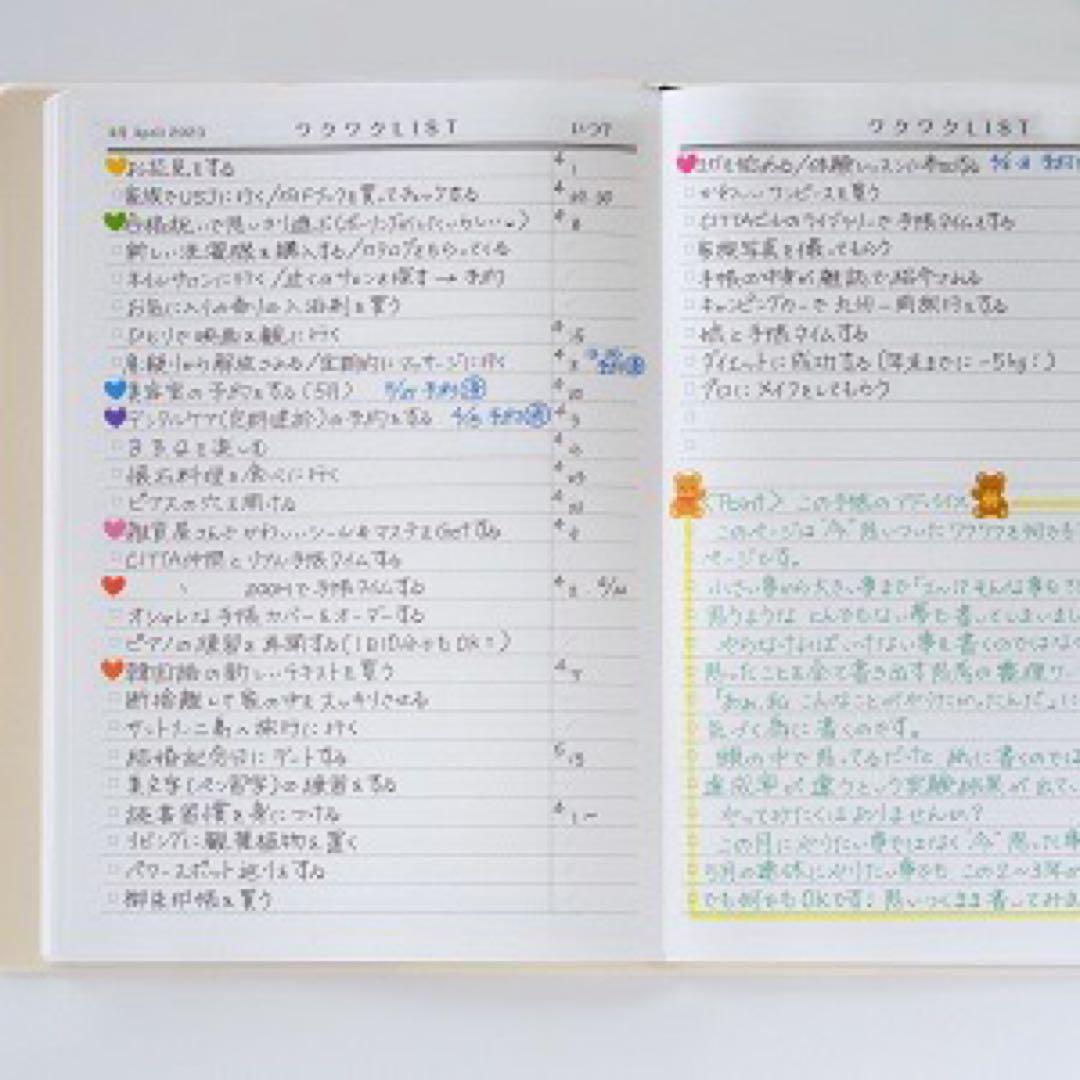 April 2023 ワクワクLIST いつ?
お花見をする 4/1
家族でUSJに行く/
合格祝いで思いきり遊ぶ(ボーリング 4/8
新しい洗濯機を購入する/カタログをもらってくる
ネイルサロンに行く/近くのサロンを探す→予約
お気に入りの香りの入浴剤を買う
ひとりで映画を観に行く
肩凝りから解放される/定期的にマッサージに行く
美容室の予約をする(5月) 予約
デンタルケア(定期健診)の予約をする 予約
を楽しむ
懐石料理を食べに行く
ピアスの穴を開ける
雑貨屋さんでかわいいシール&マステをGetする
CITTA仲間とリアル手帳タイムする
ZOOMで手帳タイムする
オシャレな手帳カバーをオーダーする
ピアノの練習を再開する(1日10分でもOK!)
韓国語の新しいテキストを買う 4/7
断捨離して家の中をスッキリさせる
サントリーニ島へ旅行に行く
結婚記念日にデートする 5/15
美文字(ペン習字)の練習をする
読書習慣を身につける 4/1~
リビングに観葉植物を置く
パワースポット巡りをする
御朱印帳を買う
ワクワクLIST
ヨガを始める/体験レッスンの
かわいいワンピースを買う
CITTAビルのライブラリーで手帳タイムをする
家族写真を撮ってもらう
手帳の中身が雑誌で紹介される
キャンピングカーで九州一周旅行をする
娘と手帳タイムする
ダイエットに成功する(年末までに-5kg!)
プロにメイクをしてもらう
〈Point〉この手帳のアドバイス
このページは"今"思いついたワクワクを何でも
ページです。
小さい夢から大きい夢まで「
思うような とんでもない夢も書いてしまいまし
やらなければいけない事を書くのではな
思ったことを全て書き出す
「あぁ、私 こんなことがやりたかったんだ」
気づく為に書くのです。
頭の中で思ってるだけと 紙に書くのでは
達成率が違うという実験結果が出て
やってみたくはありませんか?
この月にやりたい事ではなく"今"思った事
5月の連休にやりたい事でも、この2~3年
でも何でもOKです! 思いつくまま書いてみま